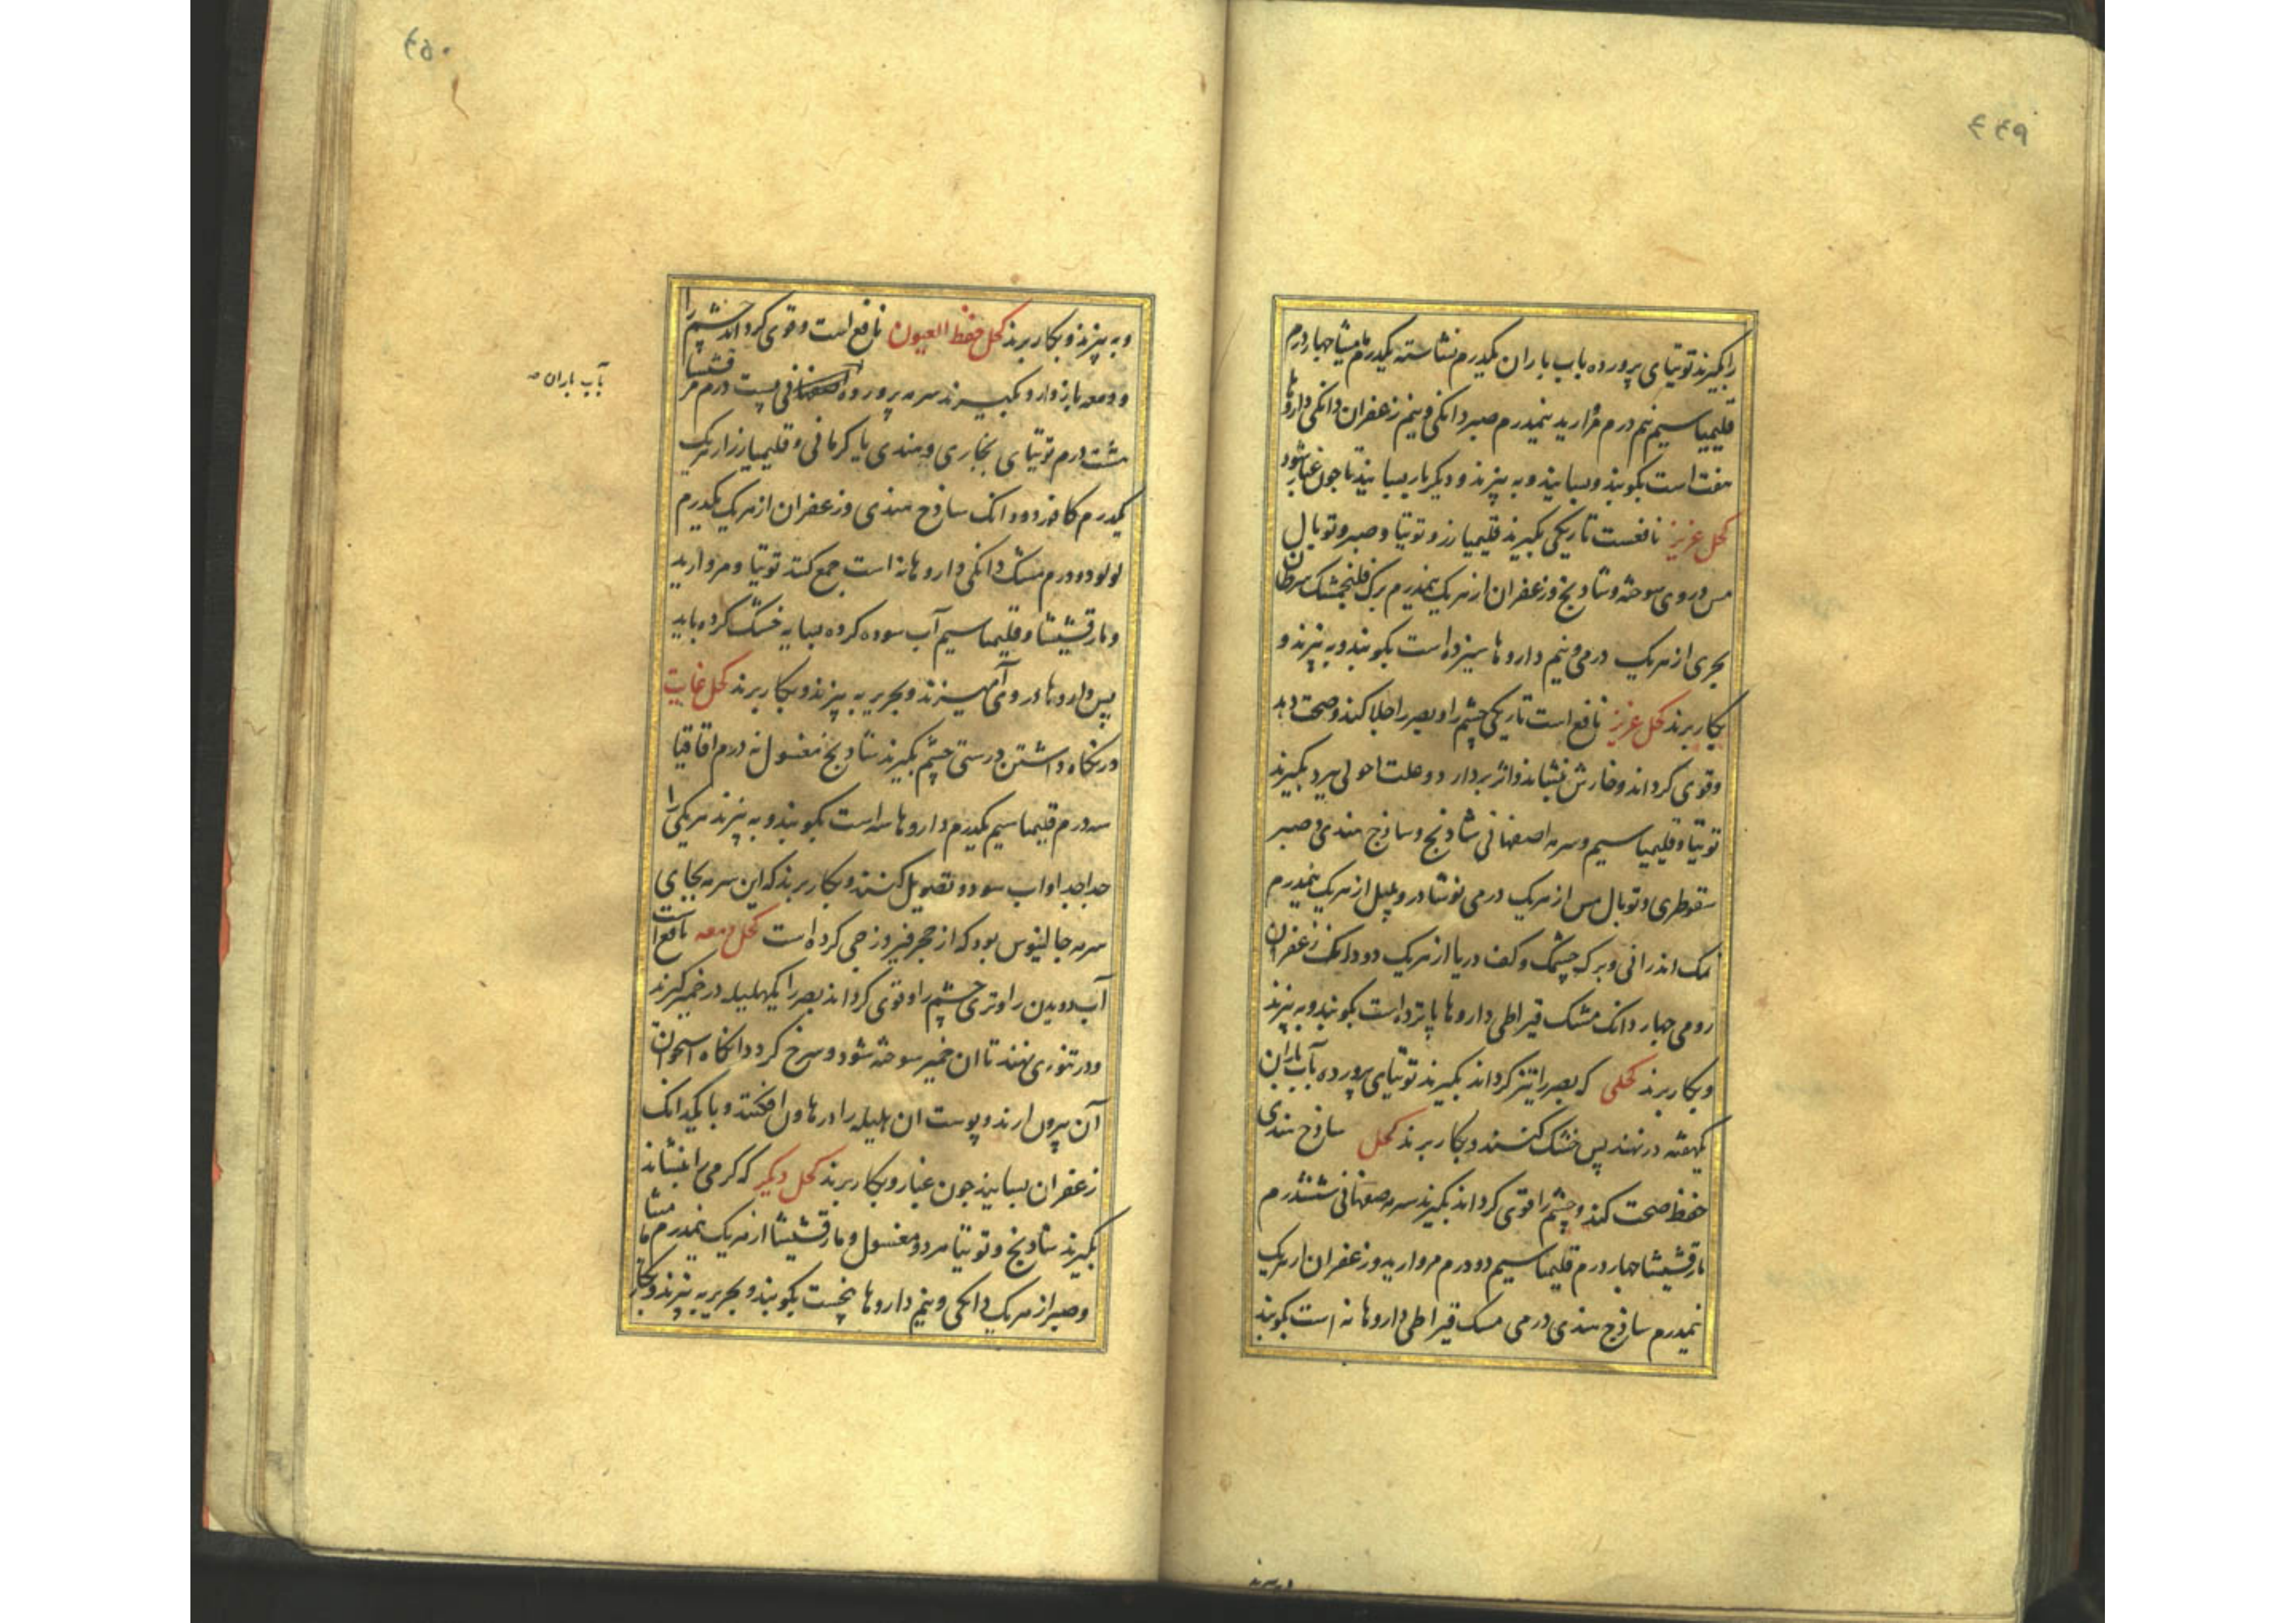 ۴۴۹
را بگیرند توتیای پرورده باب باران یکدرم نشاسته یکدرم مامیثا جهار درم
قلیمیا سیم نیم درم مروارید نیمدرم صبر دانکی و نیم زعفران دانکی داروها
هفت است بکوبند و بسایند و به بیزند و دیکر بار بسایند تا جون غبار شود
کحل عزیز نافعست تاریکی بگیرند قلیمیا زر و توتیا و صبر و توبال
مس و روی سوخته و شادنج و زعفران از هریک نیمدرم برک فلنجمشک سرطان
بحری از هریک درمی و نیم داروها سیزده است بکوبند و به بیزند و
بکار برند کحل عزیز نافع است تاریکی چشم را و بصر را جلا کند و صحت دهد
و قوی کرداند و خارش بنشاند و اثر بردارد و علت احولی ببرد بگیرند
توتیا و قلیمیا سیم و سرمه اصفهانی شادنج و ساذج هندی و صبر
سقوطری و توبال مس از هریک درمی نوشادر و پلپل از هریک نیمدرم
نمک اندرانی و برک چشمک و کف دریا از هریک دو دانک زعفران
رومی جهار دانک مشک قیراطی داروها پانزده است بکوبند و به بیزند
و بکار برند کحلی که بصر را تیز کرداند بگیرند توتیای پرورده بآب باران
یکهفته در نهند پس خشک کنند و بکار برند کحل ساذج هندی
حفظ صحت کند و چشم را قوی کرداند بگیرند سرمه صفهانی ششدرم
مارقشیشا جهار درم قلیمیا سیم دو درم مروارید و زعفران از هریک
نیمدرم ساذج هندی درمی مسک قیراطی داروها نه است بکوبند
۴۵۰
و به بیزند و بکار برند کحل حفظ العیون نافع است و قوی کرداند چشم را
و دمعه باز دارد بگیرند سرمه پرورده بیست درم مرقشیشا
هشت درم توتیای بخاری و هندی یا کرمانی و قلیمیا زر از هریک
یکدرم کافور دو دانک ساذج هندی و زعفران از هریک یکدرم
لولو دو درم مسک دانکی داروها نه است جمع کنند توتیا و مروارید
و مارقشیشا و قلیمیا سیم آب سوده کرده بسایه خشک کرده باید
پس داروها در وی آمیزند و بحریر به بیزند و بکار برند کحل غایت
در نکاه داشتن درستی چشم بگیرند شادنج مغسول نه درم اقاقیا
سه درم قلیمیا سیم یکدرم داروها سه است بکوبند و به بیزند هریکی را
جدا جدا و اب سود و تصویل کنند و بکار برند که این سرمه بجای
سرمه جالینوس بود که از حجر فیروزجی کرده است کحل دمعه نافع است
آب دویدن را و تری چشم را و قوی کرداند بصر را یک هلیله در خمیر کیرند
و در تنوری نهند تا ان خمیر سوخته شود و سرخ کردد انکاه استخوان
آن بیرون ارند و پوست ان هلیله را در هاون افکنند و با یکدانک
زعفران بسایند جون غبار و بکار برند کحل دیکر که کرمی را بنشاند
بگیرند شادنج و توتیا هر دو مغسول و مارقشیشا از هریک نیمدرم مامیثا
و صبر از هریک دانکی و نیم داروها پنجست بکوبند و بحریر به بیزند و بکار
بآب باران